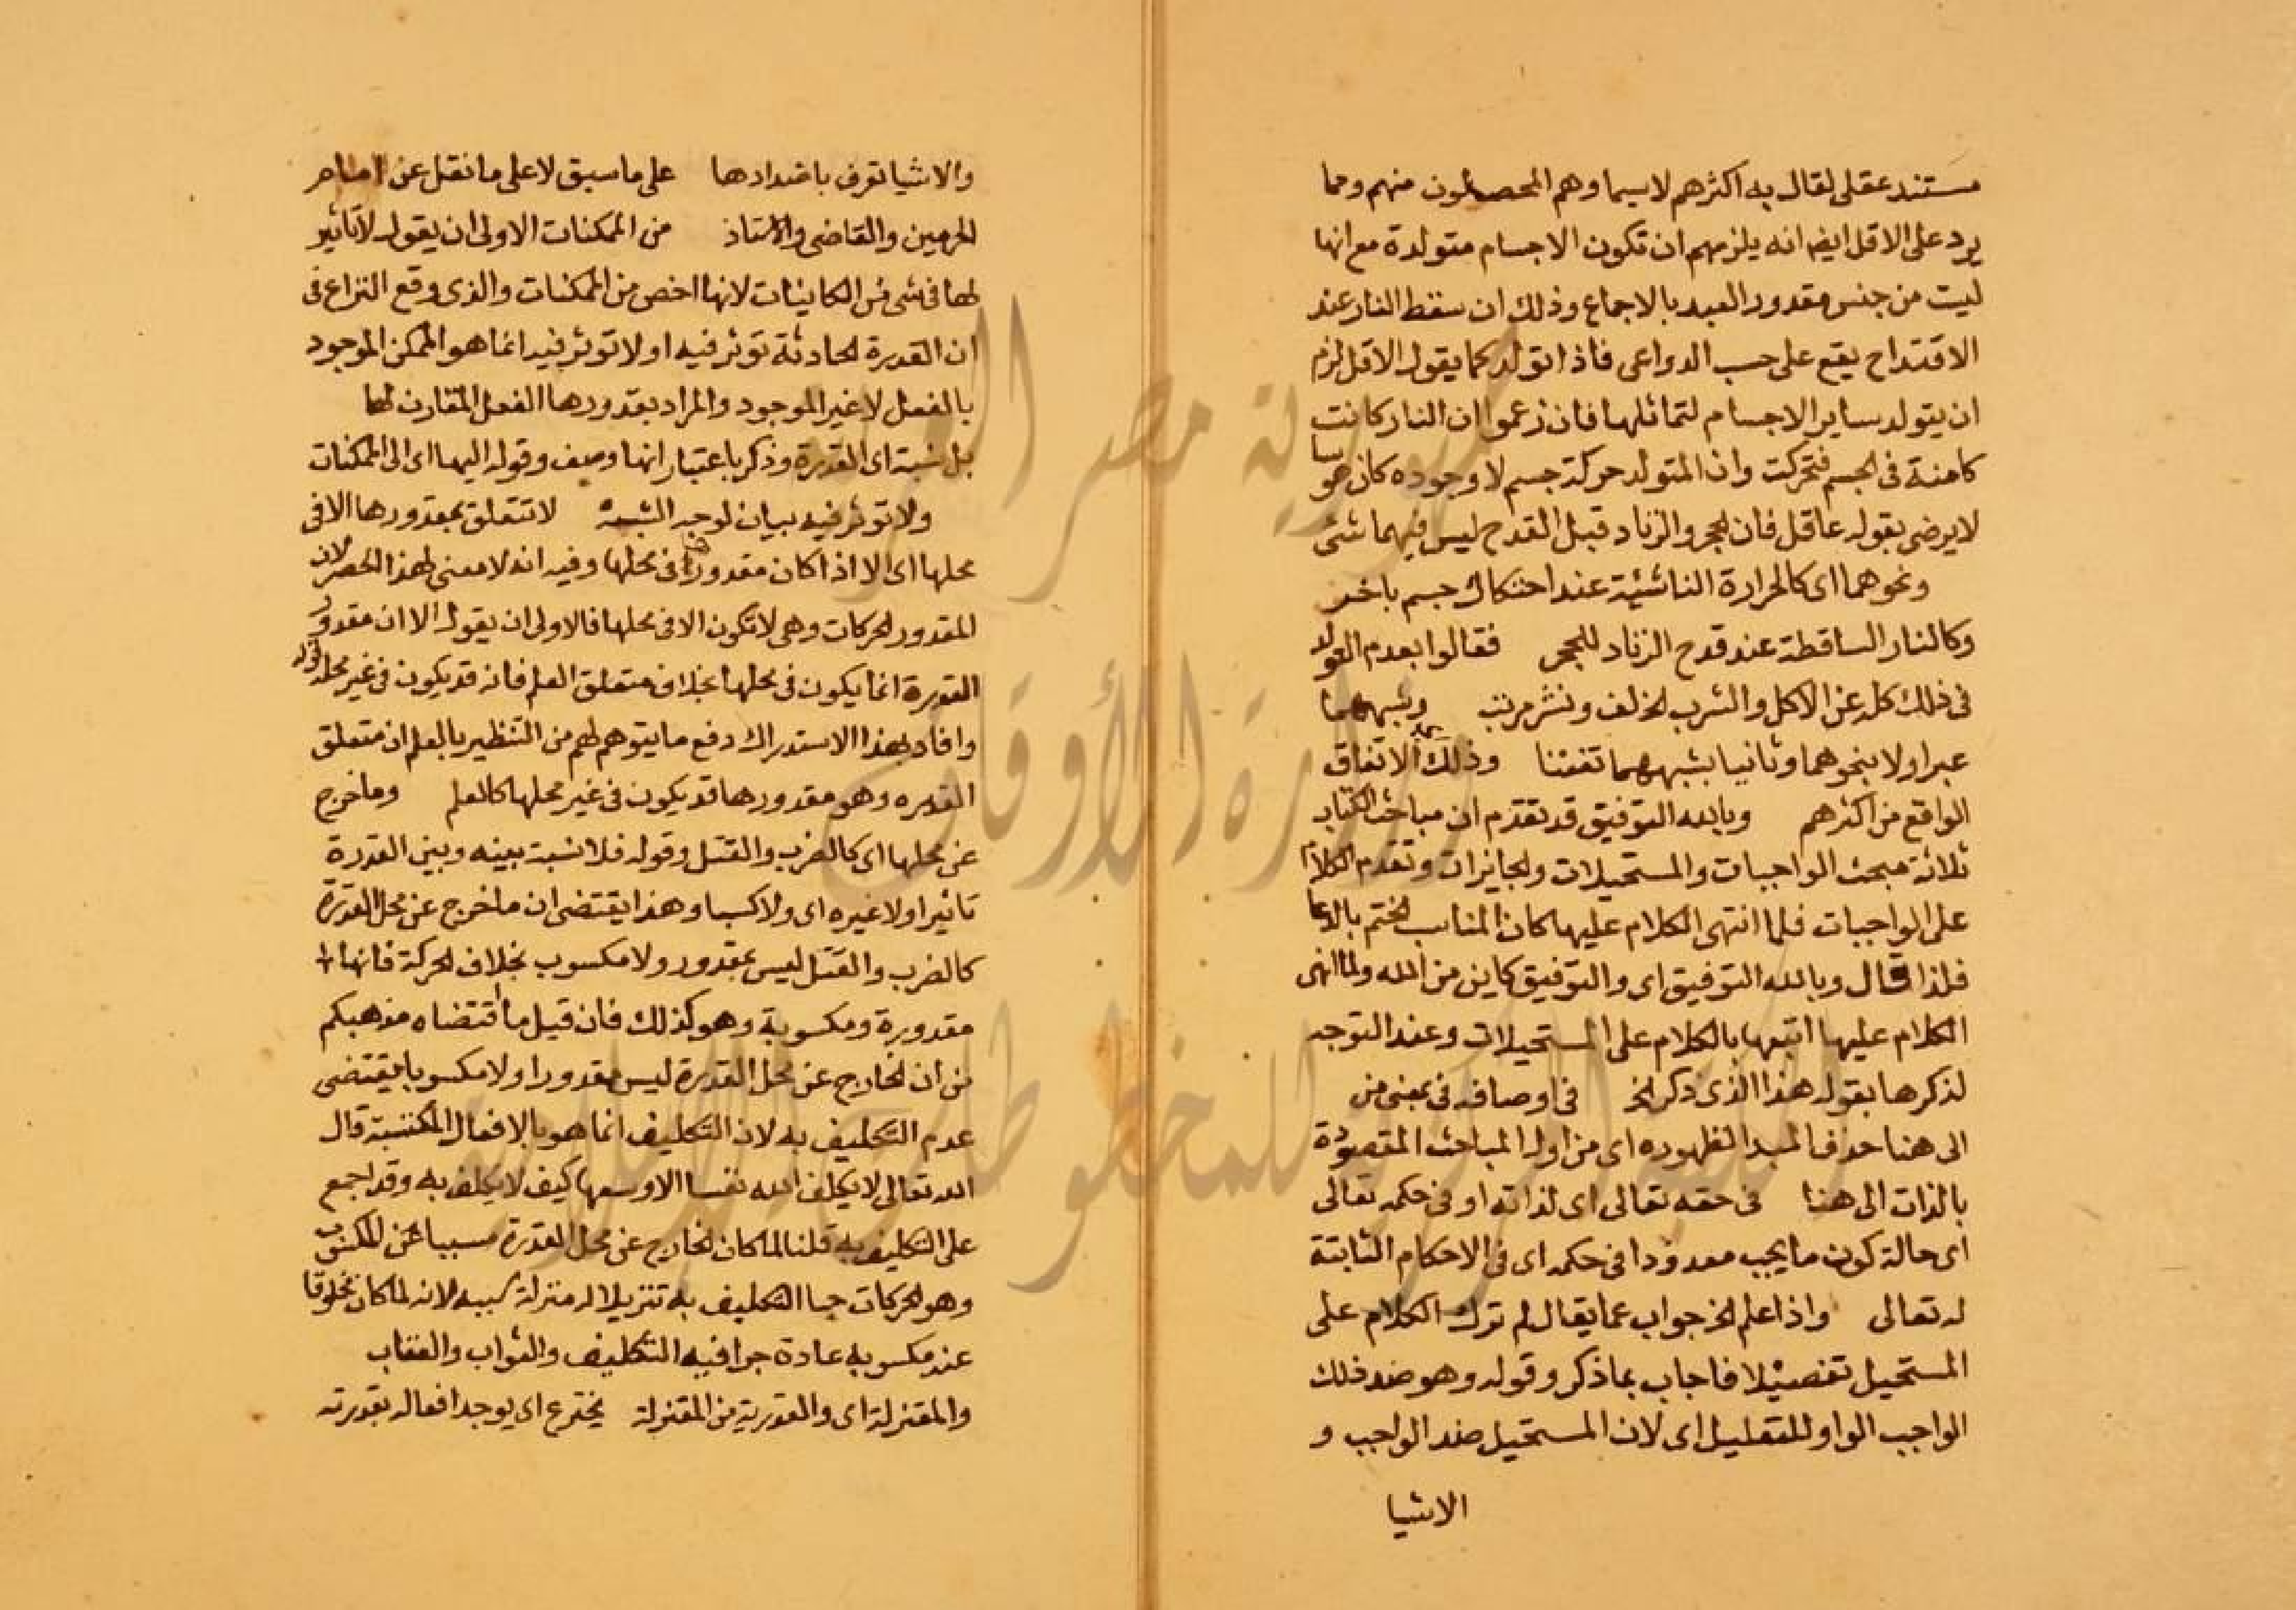 مستند عقلى لقال به اكثرهم لاسيما وهم المحصلون منهم ومما
يرد على الاقل ايضا انه يلزمهم ان تكون الاجسام متولدة مع انها
ليست من جنس مقدور العبد بالاجماع وذلك ان سقط النار عند
الاقتداح يقع على حسب الدواعى فاذا تولد كما يقول الاقل لزم
ان يتولد ساير الاجسام لتماثلها فان زعموا ان النار كانت
كامنة فى الجسم فتحركت وان المتولد حركة جسم لا وجوده كان هوسا
لا يرضى بقوله عاقل فان الحجر والزناد قبل القدح ليس فيهما شئ
ونحوهما اى كالحرارة الناشئة عند احتكاك جسم باخر
وكالنار الساقطة عند قدح الزناد للحجر فقالوا بعدم التولد
فى ذلك كله عن الاكل والشرب الخ لف ونشر مرتب وشبههما
عبر اولا بنحوهما وثانيا بشبههما تفننا وذلك الاتفاق
الواقع من اكثرهم وبالله التوفيق قد تقدم ان مباحث الكتاب
ثلاثة مبحث الواجبات والمستحيلات والجايزات وتقدم الكلام
على الواجبات فلما انتهى الكلام عليها كان المناسب الختم بالدعا
فلذا قال وبالله التوفيق اى والتوفيق كاين من الله ولما انهى
الكلام عليها اتبعها بالكلام على المستحيلات وعند التوجه
لذكرها بقوله هذا الذى ذكر الخ فى اوصافه فى بمعنى من
الى هنا حذف المبدا لظهوره اى من اول المباحث المقصودة
بالذات الى هنا فى حقه تعالى اى لذاته او فى حكمه تعالى
اى حالة كون ما يجب معدودا فى حكمه اى فى الاحكام الثابتة
له تعالى واذا علم الخ جواب عما يقال لم ترك الكلام على
المستحيل تفصيلا فاجاب بما ذكر وقوله وهو ضد ذلك
الواجب الواو للتعليل اى لان المستحيل ضد الواجب و
الاشيا
والاشيا تعرف باضدادها على ما سبق لا على ما نقل عن امام
الحرمين والقاضى والاستاذ من الممكنات الاولى ان يقول لا تاثير
لها فى شى من الكاينات لانها اخص من الممكنات والذى وقع النزاع فى
ان القدرة الحادثة توثر فيه او لا توثر فيه انما هو الممكن الموجود
بالفعل لا غير الموجود والمراد بمقدورها الفعل المقارن لها
بل نسبة اى القدرة وذكر باعتبار انها وصف وقوله اليها اى الى الممكنات
ولا توثر فيه بيان لوجه الشبه لا تتعلق بمقدورها الا فى
محلها اى الا اذا كان مقدورها فى محلها وفيه انه لا معنى لهذا الحصر لان
المقدور الحركات وهى لا تكون الا فى محلها فالاولى ان يقول الا ان مقدور
القدرة انما يكون فى محلها بخلاف متعلق العلم فانه قد يكون فى غير محله قوله
وافاد بهذا الاستدراك دفع ما يتوهم لهم من التنظير بالعلم ان متعلق
القدره وهو مقدورها قد يكون فى غير محلها كالعلم وما خرج
عن محلها اى كالضرب والقتل وقوله فلا نسبة بينه وبين القدرة
تاثيرا ولا غيره اى ولا كسبا وهذا يقتضى ان ما خرج عن محل القدرة
كالضرب والقتل ليس بمقدور ولا مكسوب بخلاف الحركة فانها
مقدورة ومكسوبة وهو كذلك فان قيل ما اقتضاه مذهبكم
من ان الخارج عن محل القدرة ليس مقدورا ولا مكسوبا يقتضى
عدم التكليف به لان التكليف انما هو بالافعال المكتسبة قال
الله تعالى لا يكلف الله نفسا الا وسعها كيف لا يكلف به وقد اجمع
على التكليف به قلنا لما كان الخارج عن محل القدرة مسببا عن المكتسب
وهو الحركات جا التكليف به تنزيلا له منزلة سببه لانه لما كان مخلوقا
عند مكسوبه عادة جرا فيه التكليف والثواب والعقاب
والمعتزلة اى والقدرية من المعتزلة يخترع اى يوجد افعاله بقدرته